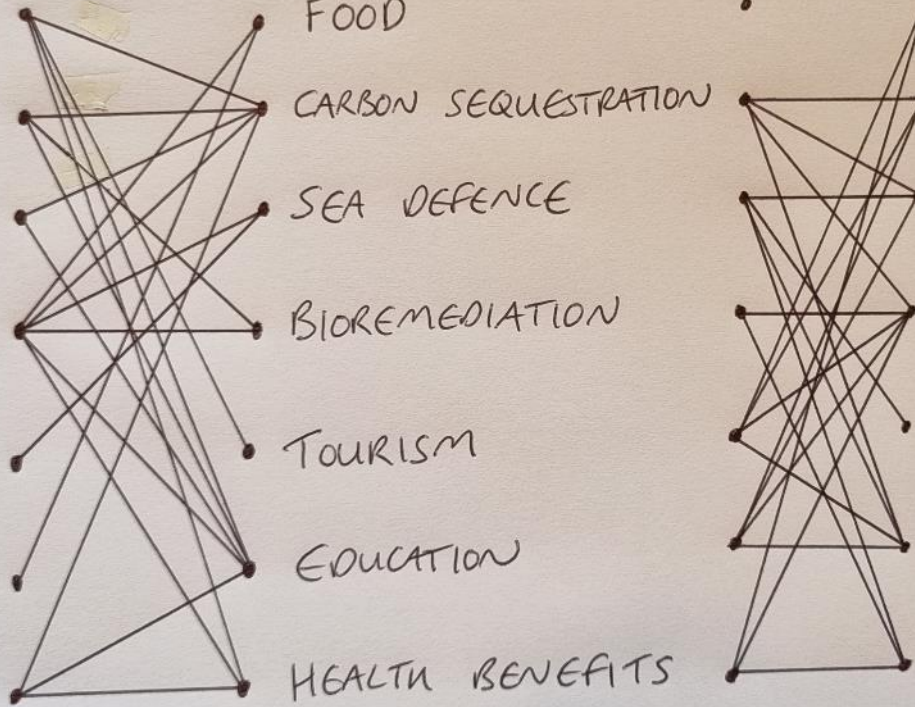 FOOD
CARBON SEQUESTRATION
SEA DEFENCE
BIOREMEDIATION
TOURISM
EDUCATION
HEALTH BENEFITS